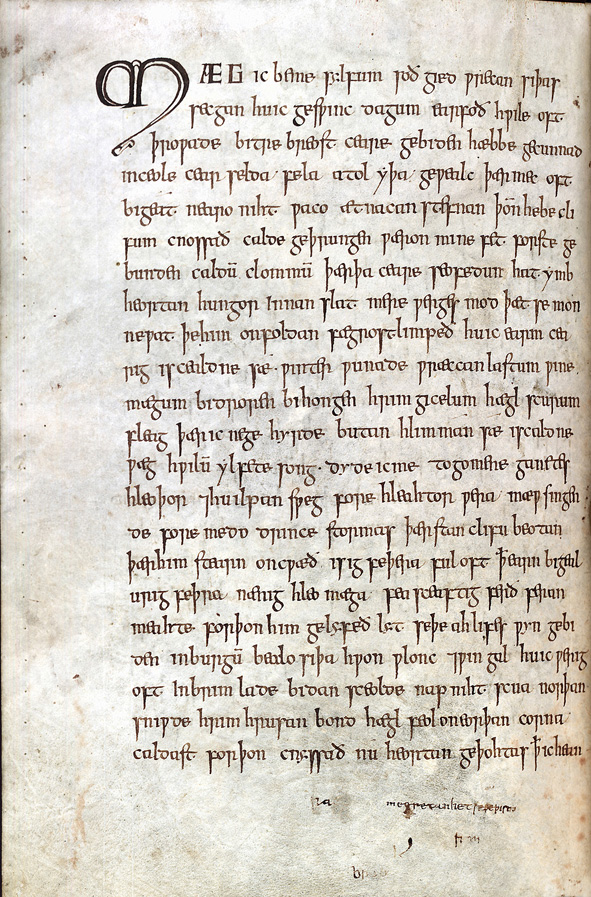 MÆG ic beme sylfum soð gied ƿrecan siþas
secgan huic gesƿinc dagum earfoð hƿile oft
þroƿade bitre breost ceare gebiden hæbbe gecunnad
inceole cear selda · fela atol yþa · geƿealc þær mec oft
bigeat · nearo niht ƿaco ætnacan stefnan þon̄ hebe cli
fum cnossað calde geþrungen ƿæron mine fet forste ge
bunden caldū clommū þærþa ceare seofedun hat · ymb
heortan hungor Innan slat mere ƿerges mod þæt se mon
neƿat þehim onfoldan fægrost limpeð huic earm cea
rig iscealdne sæ · ƿinter ƿunade ƿræccan lastum ƿine ·
mægum bidroren bihongen hrim gicelum hægl scurum
fleag þær ic negehyrde butan hlimman sæ iscaldne
ƿæg hƿilū ylfete song · dyde icme togomene ganetes
hleoþor ⁊ huilpan sƿeg fore hleahtor ƿera · mæƿ singen
de fore medo drince stormas þær stan clifu beotan
þær him stearn oncƿæð isig feþera ful oft ꝥ earn bigeal
urig feþra · nænig hleo mæga · fea sceaftig ferð feran
meahte · forþon him gelyfeð lyt · seþe ah lifes ƿyn gebi
den inburgū bealo siþa hƿon ƿlonc ⁊ƿin gal huic ƿerig
oft Inbrim lade bidan sceolde nap niht scua norþan
sniƿde hrim hrusan bond hægl feol oneorþan corna
caldast · forþon cnyssað nu heortan geþohtas ꝥ ic hean